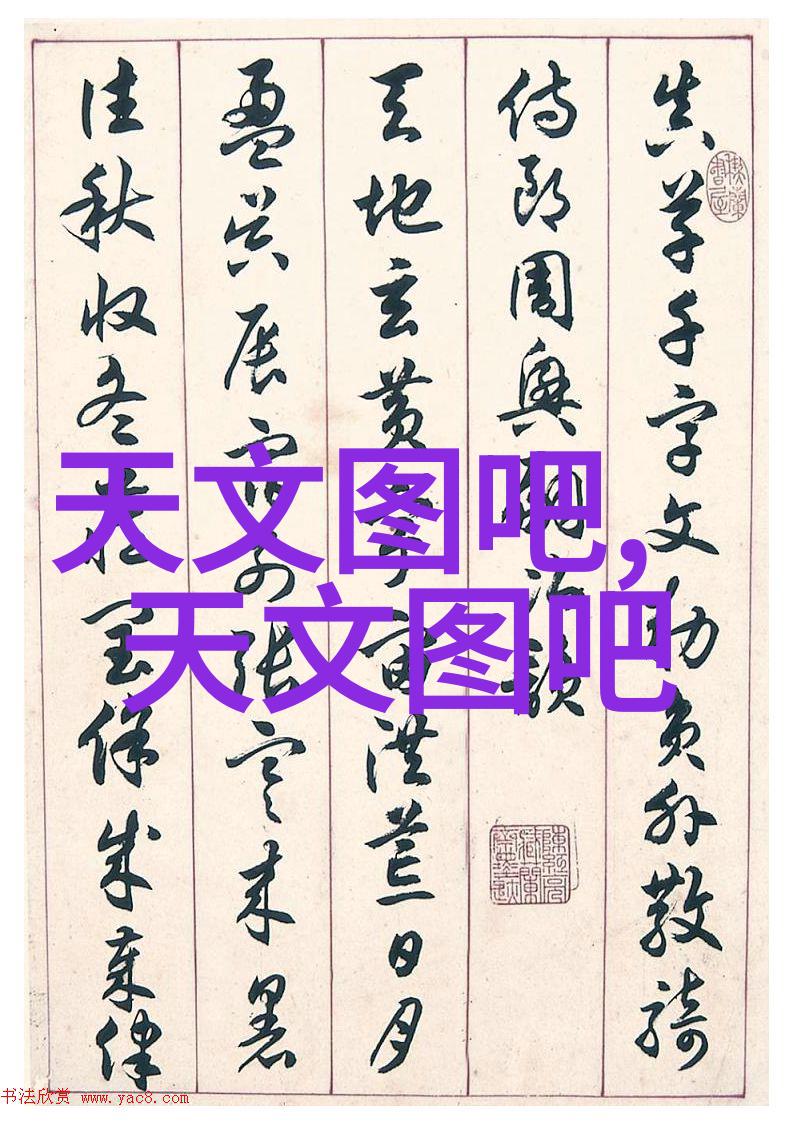 真草千字文勅員外散騎
侍郎周興嗣次韻
天地玄黄宇宙洪荒日月
盈昃辰宿列張寒来暑
往秋收冬蔵閏餘成歳律
天文图吧,
天文图吧
书法欣赏 www.yac8.com